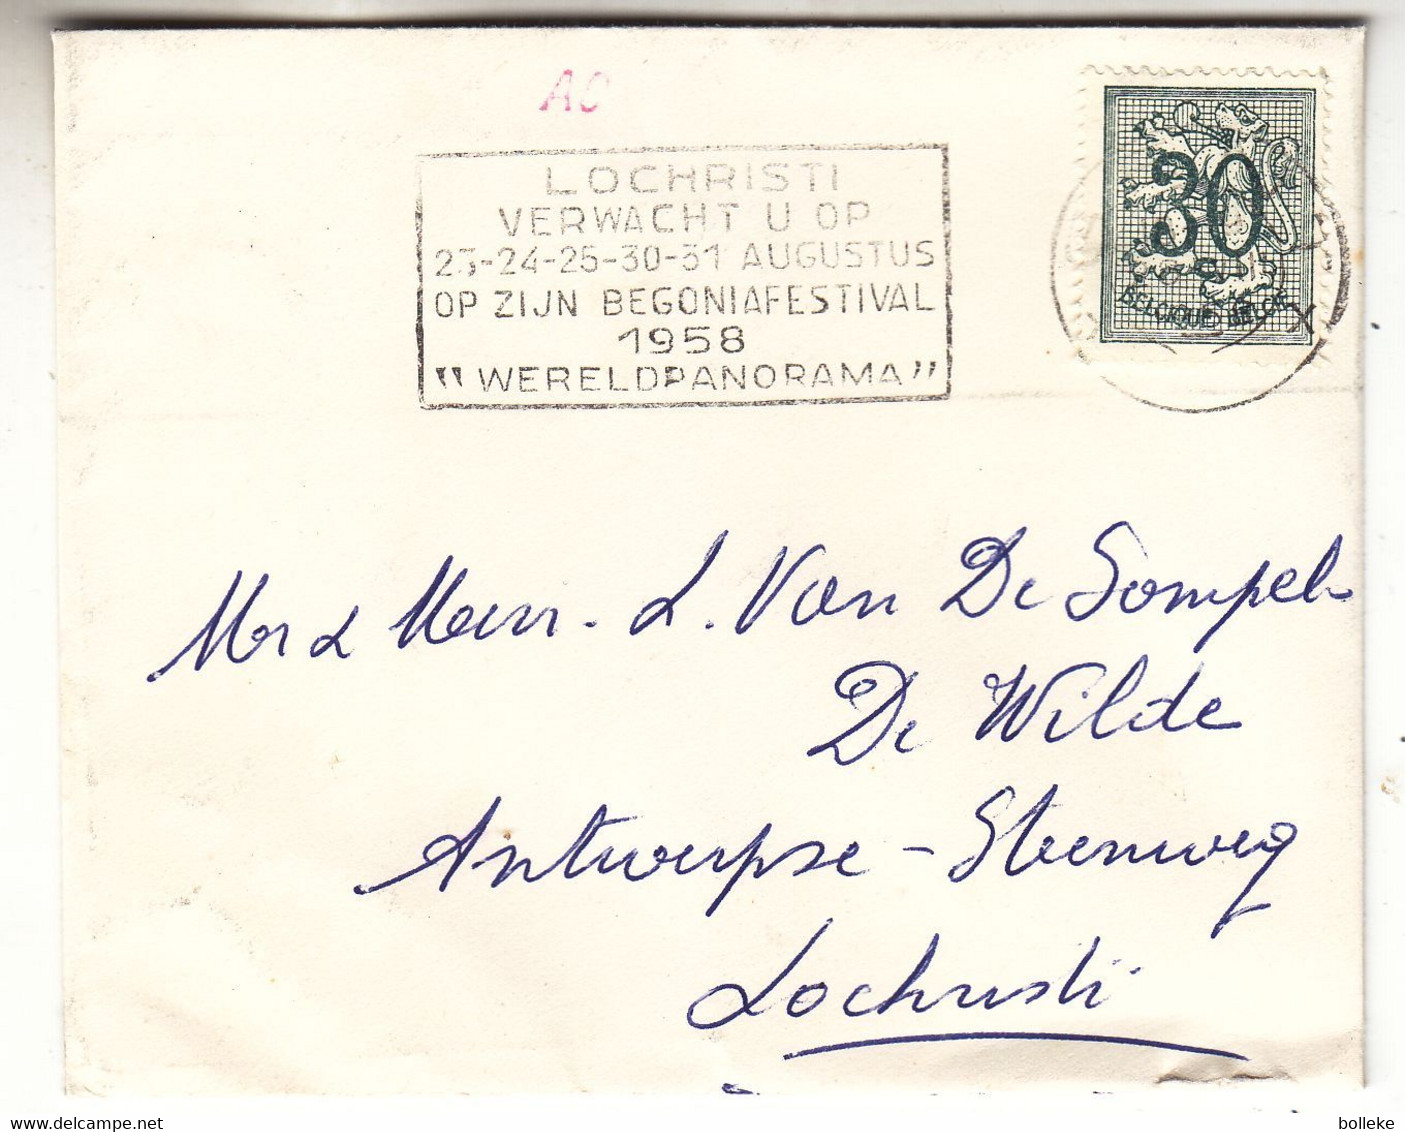 AC
LOCHRISTI
VERWACHT U OP
23-24-25-30-31 AUGUSTUS
OP ZIJN BEGONIAFESTIVAL
1958
"WERELDPANORAMA"
30
BELGIQUE BELGIE
X
Mr & Mevr. L. Van De Sompel-
De Wilde
Antwerpse-Steenweg
Lochristi
delcampe.net
bolleke